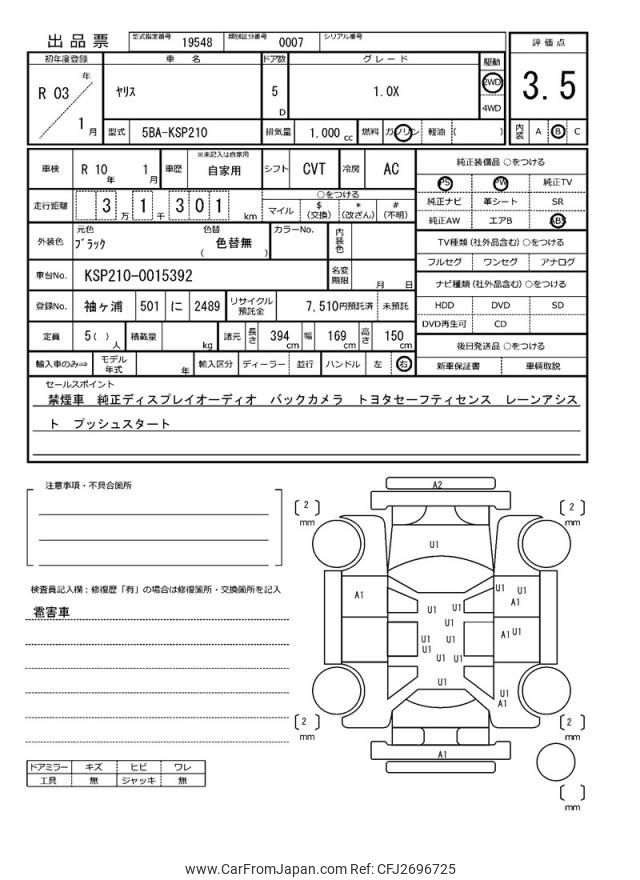 出品票 型式指定番号 19548 類別区分番号 0007 シリアル番号
初年度登録 車名 ドア数 グレード 駆動 評価点
R 03 年 1 月 ヤリス 5 D 1.0X 2WD 4WD 3.5
型式 5BA-KSP210 排気量 1.000 cc 燃料 ガソリン 軽油 ( ) 内装 A B C
車検 R 10 年 1 月 車歴 ※未記入は自家用 自家用 シフト CVT 冷房 AC
走行距離 3 万 1 千 3 0 1 km ○をつける
マイル $ (交換) * (改ざん) # (不明)
外装色 元色 ブラック 色替 ( 色替無 ) カラーNo. 内装色
車台No. KSP210-0015392 名変期限 月 日
登録No. 袖ヶ浦 501 に 2489 リサイクル預託金 7,510円預託済 未預託
定員 5( ) 人 積載量 kg 諸元 長さ 394 cm 幅 169 cm 高さ 150 cm
輸入車のみ⇒ モデル年式 年 輸入区分 ディーラー 並行 ハンドル 左 右
純正装備品 ○をつける
PS PW 純正TV
純正ナビ 革シート SR
純正AW エアB ABS
TV種類 (社外品含む) ○をつける
フルセグ ワンセグ アナログ
ナビ種類 (社外品含む) ○をつける
HDD DVD SD
DVD再生可 CD
後日発送品 ○をつける
新車保証書 車輌取説
セールスポイント
禁煙車 純正ディスプレイオーディオ バックカメラ トヨタセーフティセンス レーンアシス
ト プッシュスタート
注意事項・不具合箇所
検査員記入欄：修復歴「有」の場合は修復箇所・交換箇所を記入
雹害車
ドアミラー キズ ヒビ ワレ
工具 無 ジャッキ 無
A2
[ 2 ] mm
[ 2 ] mm
U1
A1
U1 U1
A1
U1 U1
U1
U1 U1
U1
U1 U1
A1 U1
U1
U1
A1
[ 2 ] mm
[ 2 ] mm
A1
[ ] mm
www.CarFromJapan.com Ref: CFJ2696725